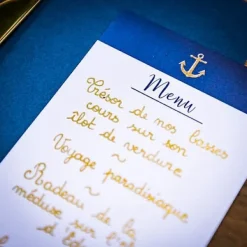 Menu
Trésor de nos basses
cours sur son
îlot de verdure
~
Voyage paradisiaque
~
Radeau de la
méduse sur